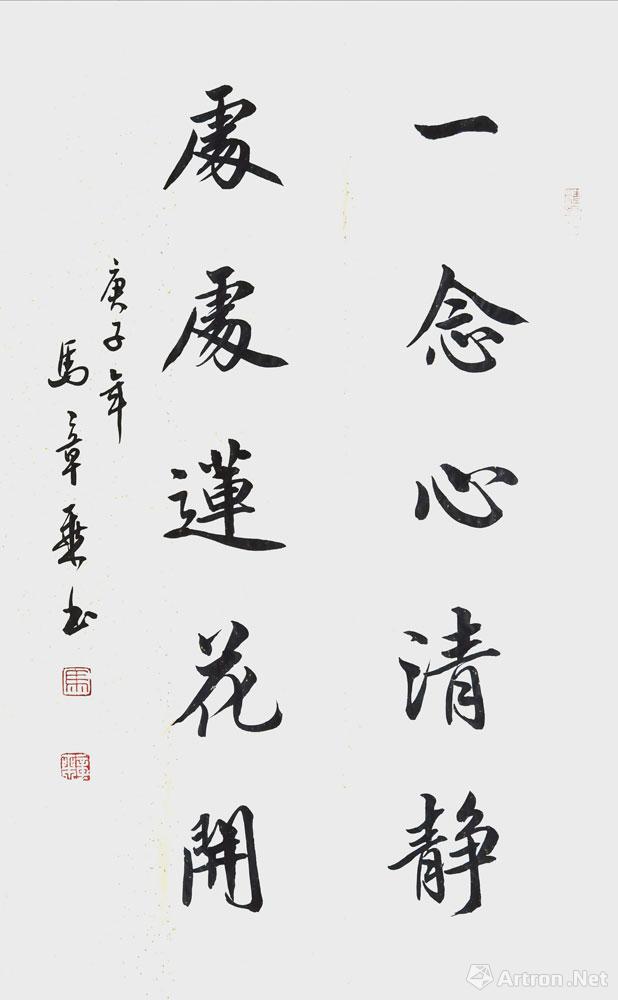 一念心清静
處處蓮花開
庚子年
馬章乘书
Artron.Net